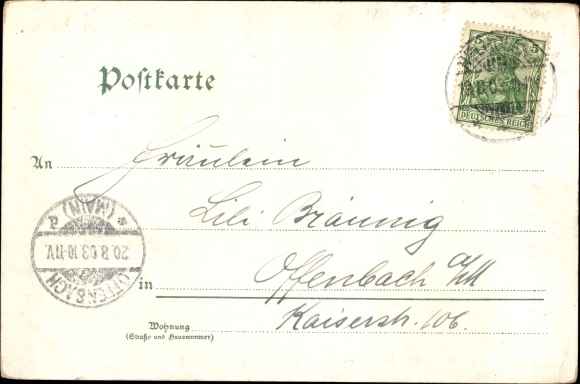 Postkarte
5 5
DEUTSCHES REICH
An Fräulein
Lili Bräunig
in Offenbach a/M
Kaiserstr. 106.
Wohnung
(Straße und Hausnummer)
(MAIN)
20.8.03.10-11V.
OFFENBACH